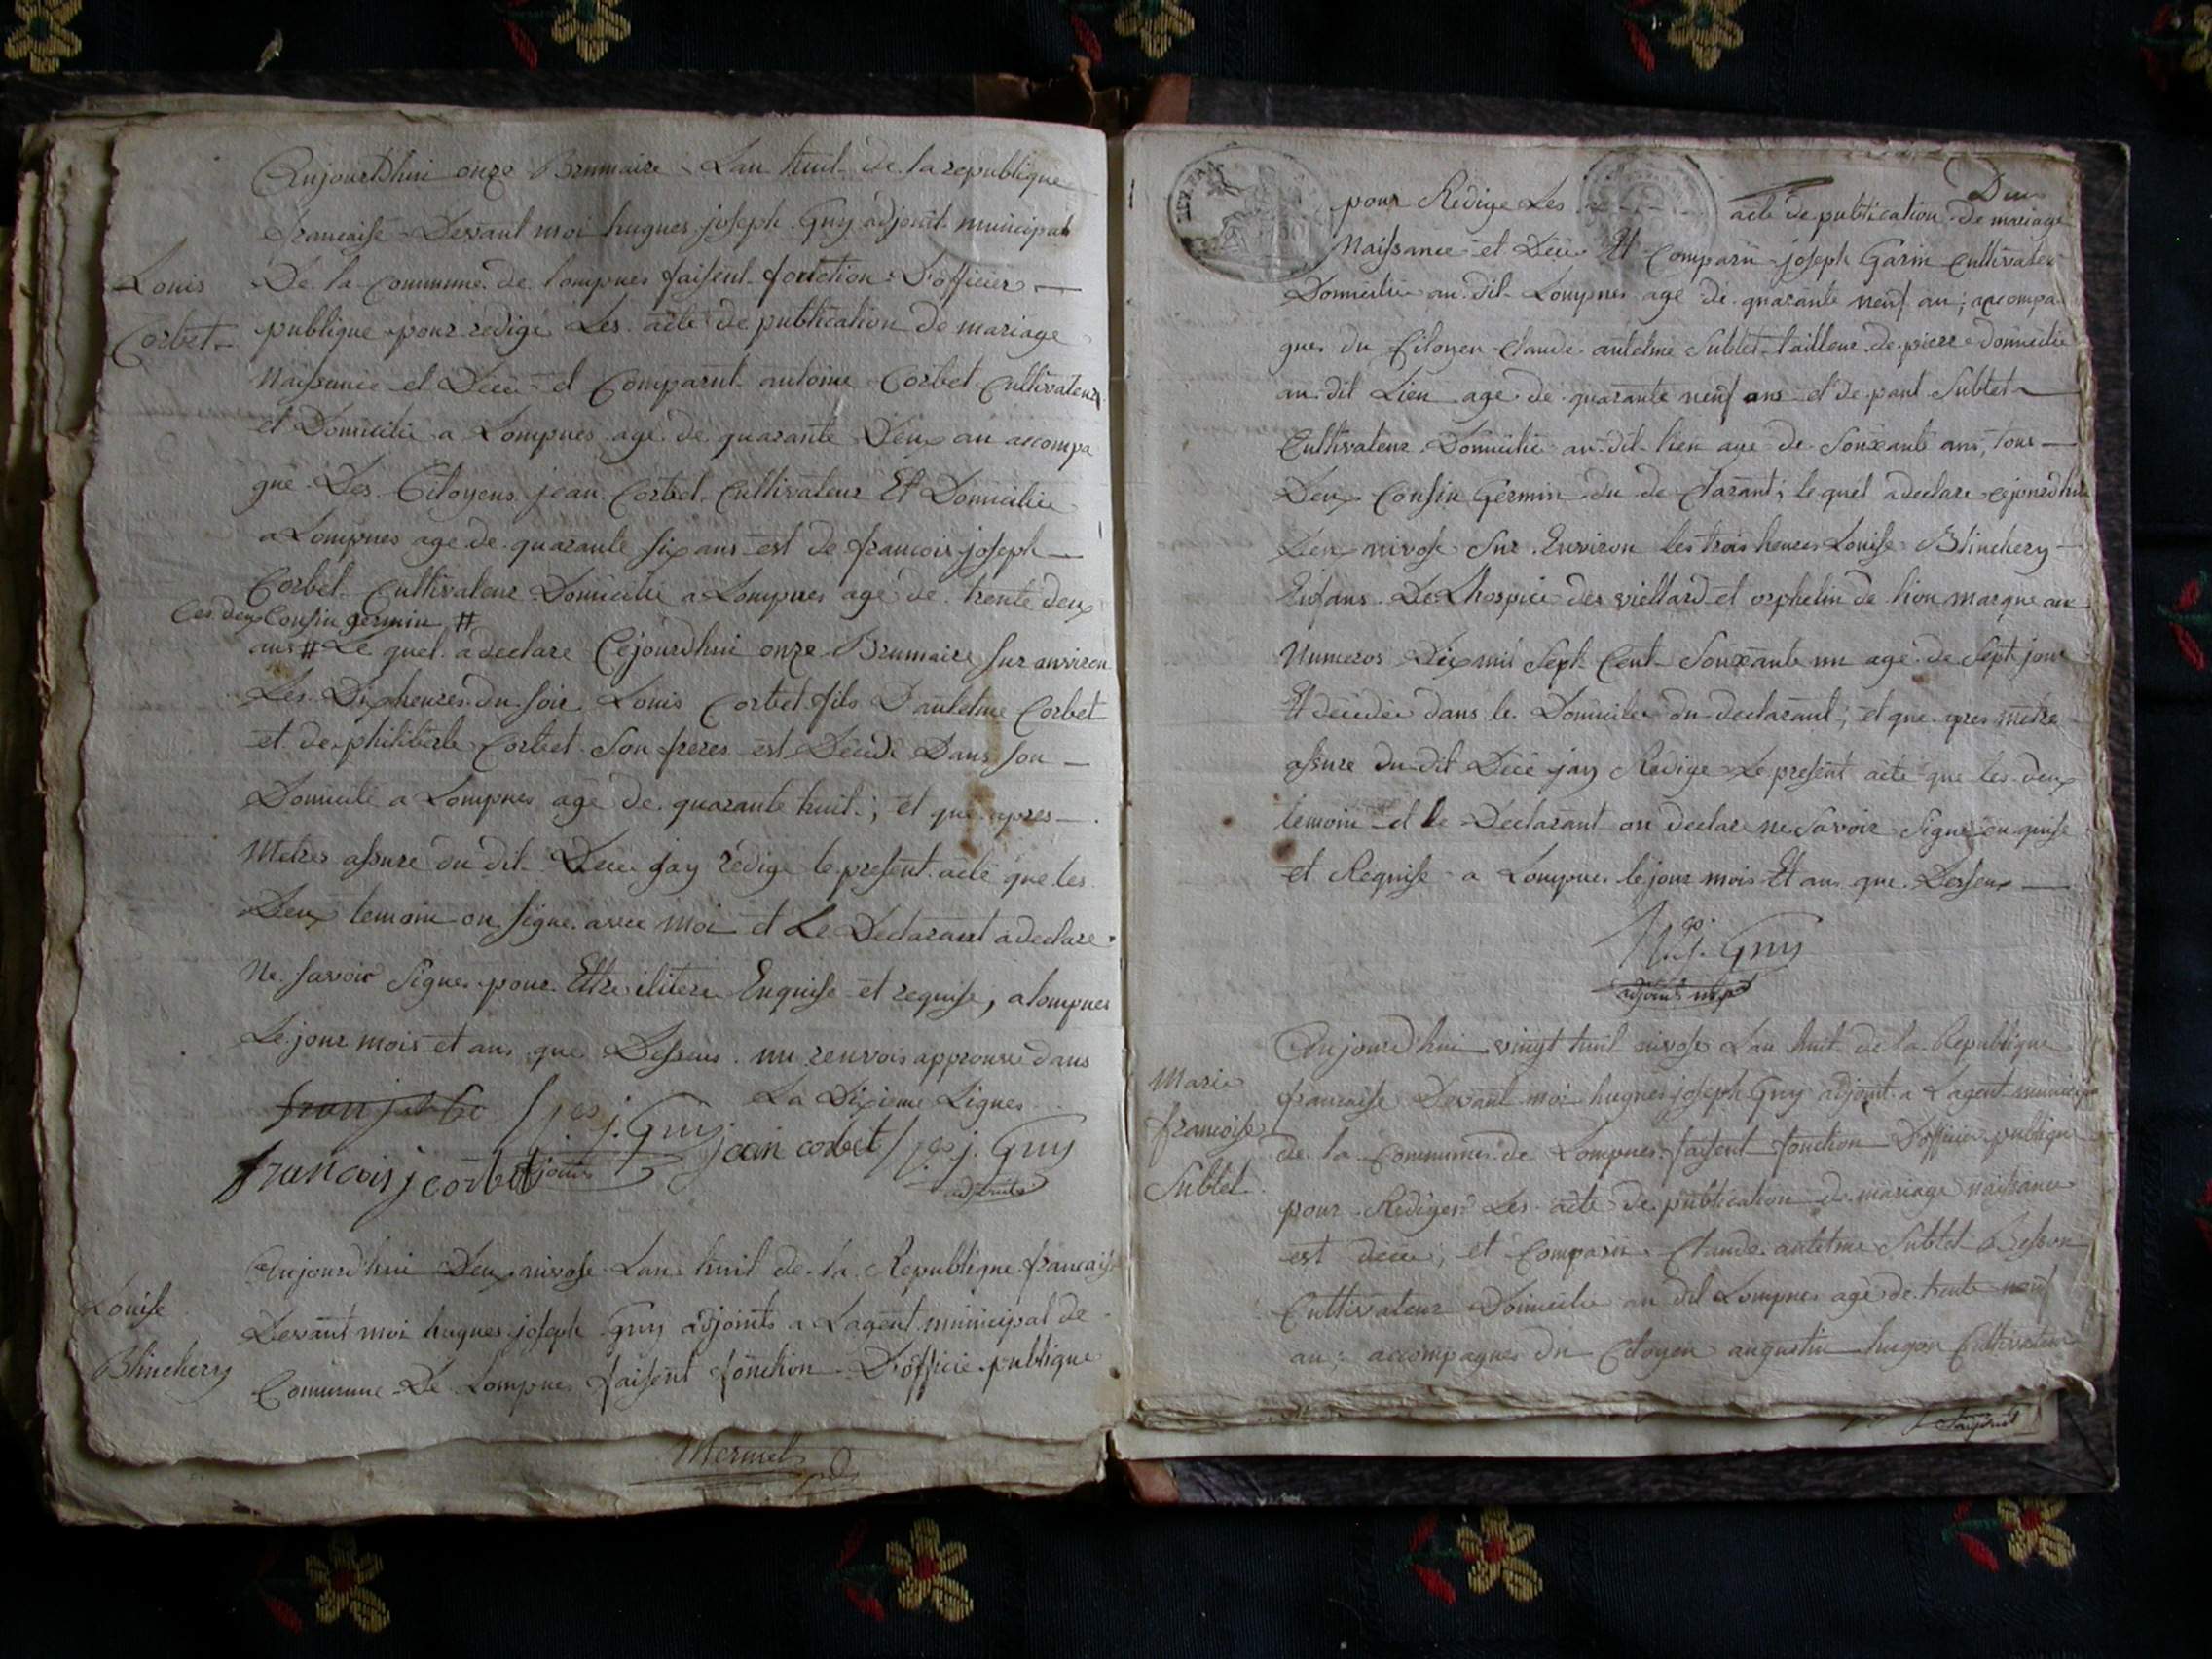 Aujourdhui onze Brumaire Lan huit de la republique
francaise Devant moi hugues joseph Guy adjoint municipal
Louis
De la Commune de lompnes faisent fonction D'officier
Corbet
publique pour redige Les acte de publication de mariage
Naissance et Décé et Comparut antoine Corbet Cultivateur
et Domicilie a Lompnes age de quarante Deux an accompa
gné Des Citoyens jean Corbet Cultivateur Et Domicilie
a Lompnes age de quarante six ans est de francois joseph
Corbet Cultivateur Domicilie a Lompnes age de trente deux
Ces deux Cousin germin #
ans # Le quel a declare Cejourdhui onze Brumaire sur environ
Les Dix heures du soir Louis Corbet fils D'antelme Corbet
et de philiberte Corbet son freres est Décéde Dans son
Domicile a Lompnes age de quarante huit ; et que apres
Metres assure du dit Décé jay rédige le present acte que les
Deux temoin on signe avec moi et Le Declarant a declare
Ne savoir Signer pour Ettre ilitere Enquise et requise, a lompnes
Le jour mois et ans que Dessus un renvois approuve dans
La Dixieme Lignes
j. Guy
jean corbet
j. Guy
francois j corbet
adjoint
adjoint
Aujourd'hui Deux nivose Lan huit de la Republique francaise
Louise
Devant moi hugues joseph Guy adjoints a Lagent municipal de
Blinchery
Commune De Lompnes faisent fonction D'officie publique
Mermet
Deux
pour Rédige Les acte de publication de mariage
Naissance et Décé Et Comparu joseph Garin Cultivateur
Domicilie au dit Lompnes age de quarante neuf an ; accompa
gnes du Citoyen Claude antelme Sublet tailleur de pierre domicilie
au dit Lieu age de quarante neuf ans et de paul Sublet
Cultivateur Domicilie au dit lieu age de Souxante ans, tous
Deux Cousin Germin du de Clarant ; le quel a declare cejourdhui
Deux nivose Sur Environ les trois heures Louise Blinchery
Enfans De Lhospice des viellard et orphelin de lion marque au
Numeros Dix mil Sept Cent Souxante un age de Sept jour
Et décédée dans le Domicile du declarant ; et que apres metre
assure du dit Décé jay Rédige Le present acte que les deux
temoin et le Declarant on declare ne Savoir Signer en quise
et Requise a Lompnes le jour mois Et ans que Dessus
H. j. Guy
adjoint mpal
Aujourd'hui vingt huit nivose Lan huit de la Republique
Marie
francaise Devant moi hugues joseph Guy adjoint a Lagent municipal
francoise
de la Commune de Lompnes faisent fonction D'officier publique
Sublet
pour Rediger Les acte de publication de mariage naissance
est décé ; et Comparu Claude antelme Sublet Besson
Cultivateur Domicilie au dit Lompnes age de trente neuf
an ; accompagnes du Citoyen augustin hugon Cultivateur